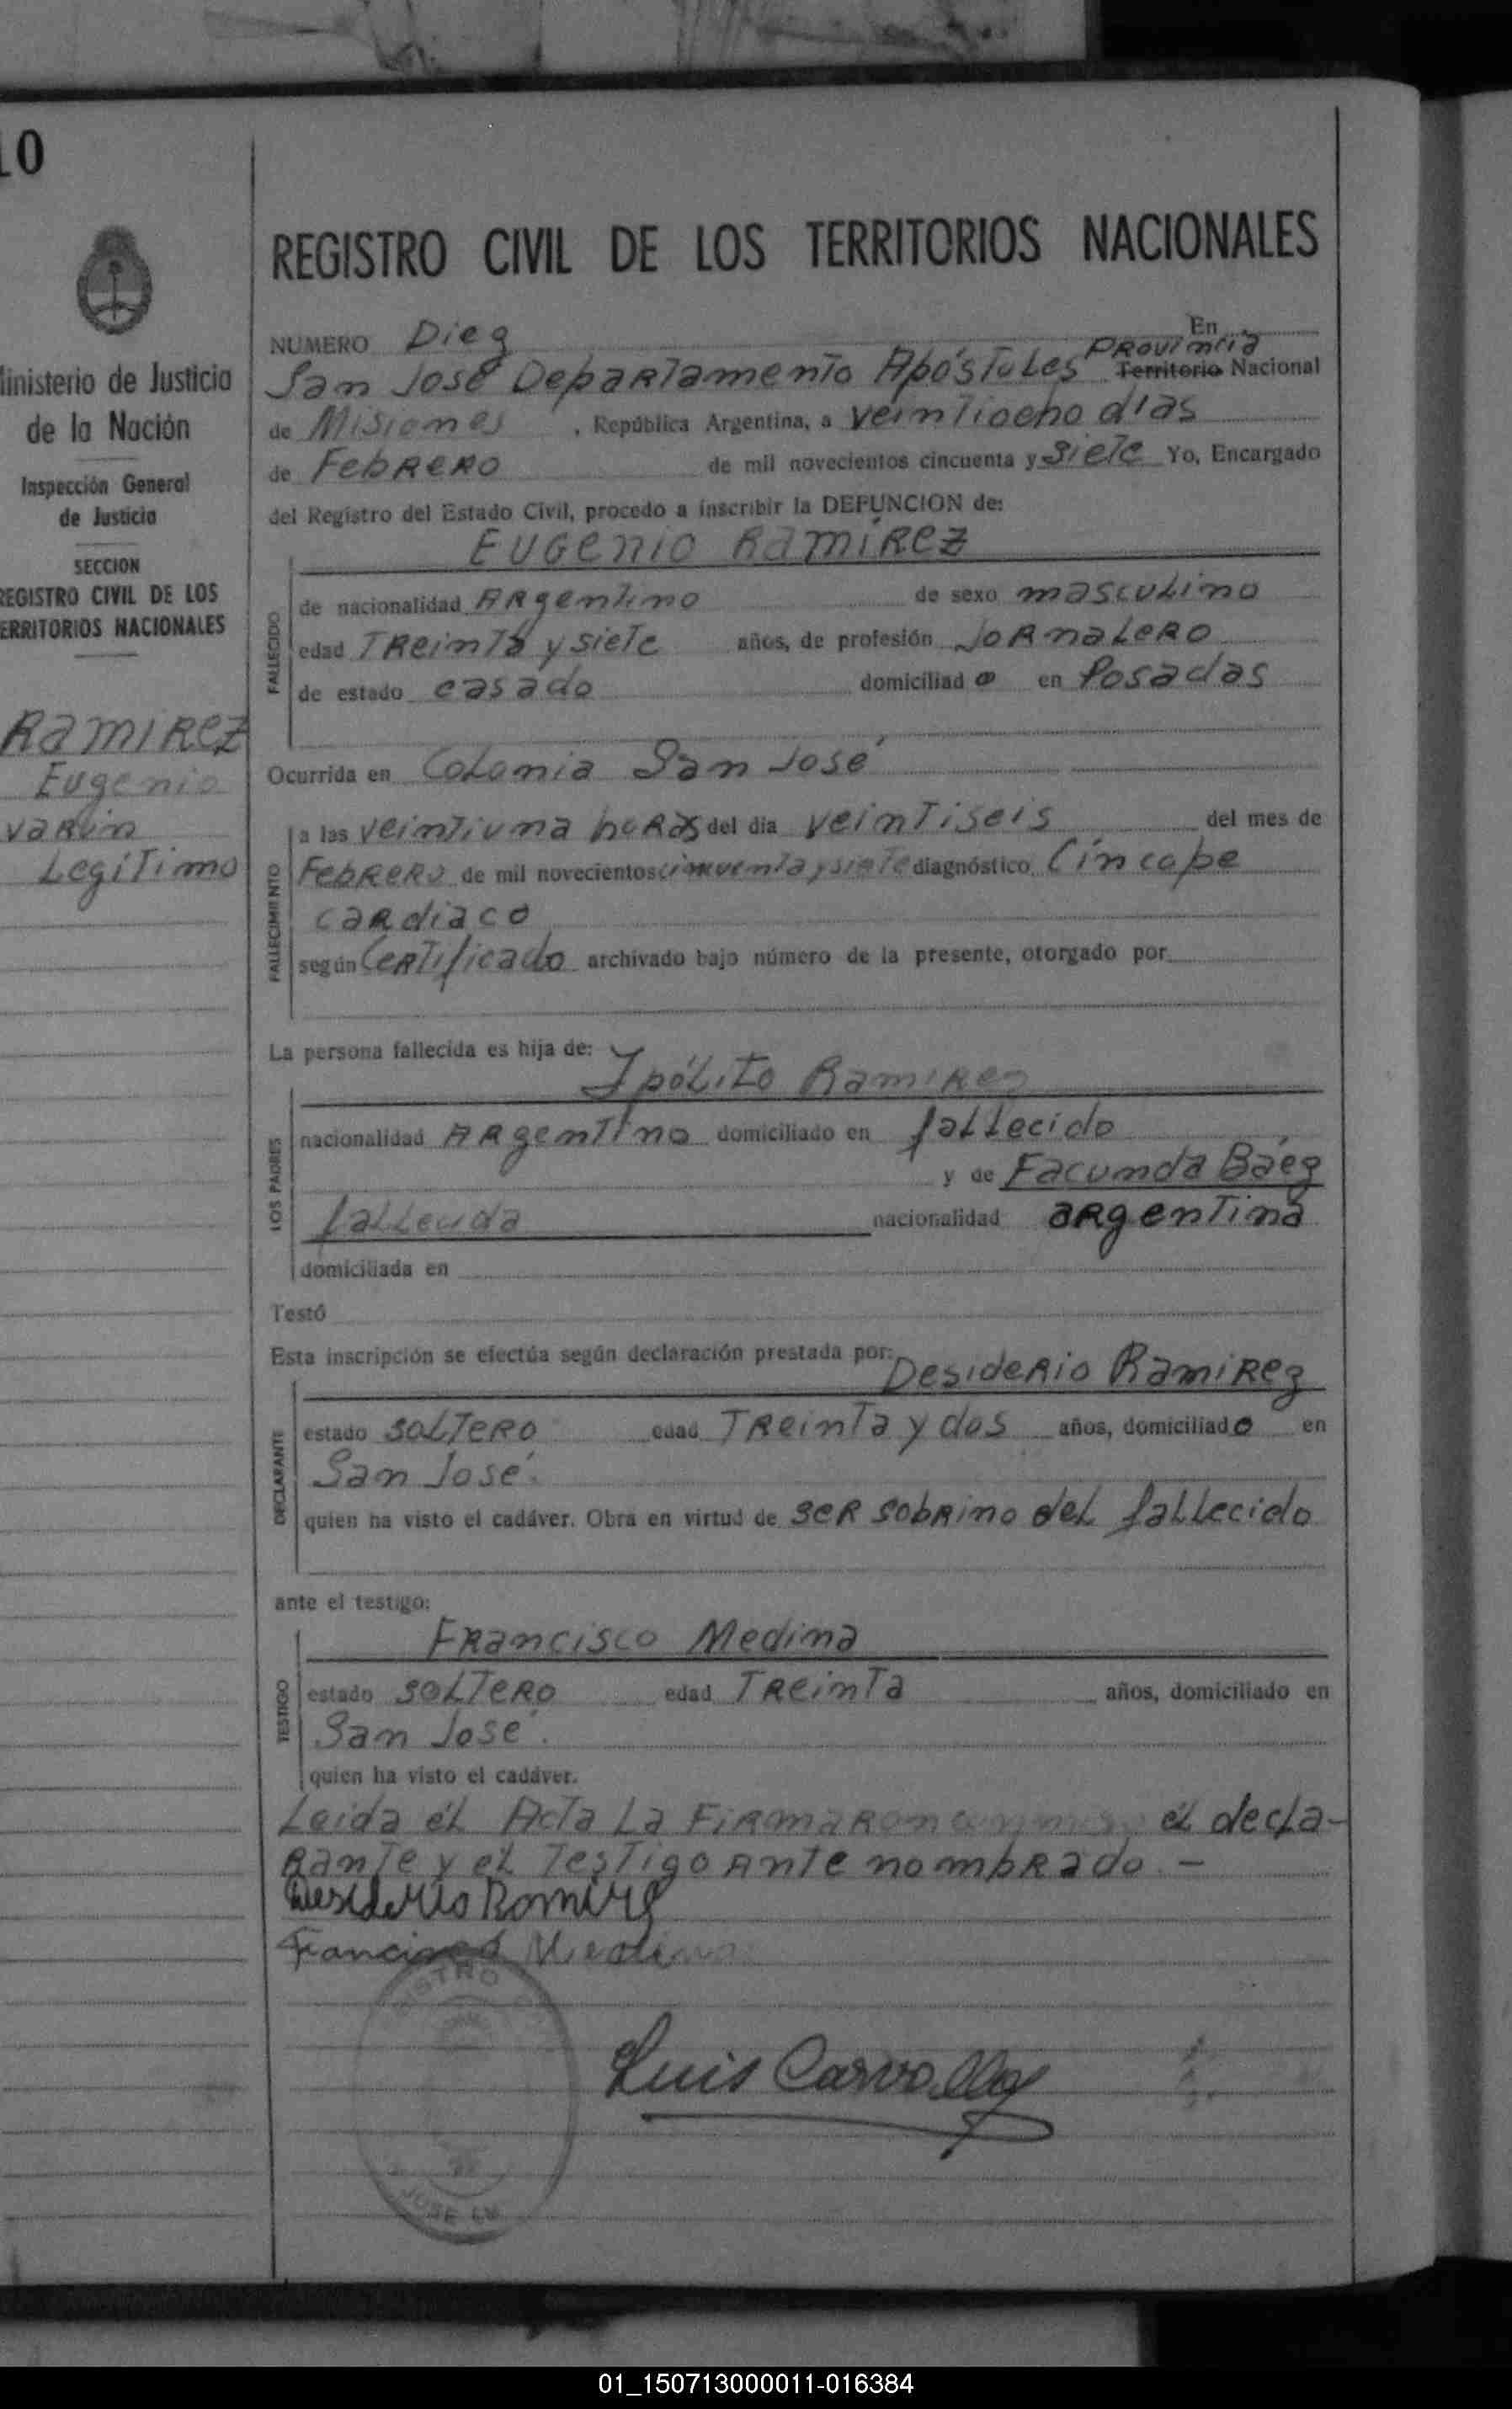 10
Ministerio de Justicia
de la Nación
Inspección General
de Justicia
SECCION
REGISTRO CIVIL DE LOS
TERRITORIOS NACIONALES
Ramirez
Eugenio
varón
Legítimo
REGISTRO CIVIL DE LOS TERRITORIOS NACIONALES
NUMERO Diez En
San José Departamento Apóstoles Provincia Territorio Nacional
de Misiones, República Argentina, a veintiocho dias
de Febrero de mil novecientos cincuenta y Siete Yo, Encargado
del Registro del Estado Civil, procedo a inscribir la DEFUNCION de:
Eugenio Ramírez
FALLECIDO
de nacionalidad Argentino de sexo masculino
edad Treinta y siete años, de profesión Jornalero
de estado casado domiciliado en Posadas
Ocurrida en Colonia San José
FALLECIMIENTO
a las veintiuna horas del día veintiseis del mes de
Febrero de mil novecientos cincuenta y siete diagnóstico Cíncope
cardiaco
según Certificado archivado bajo número de la presente, otorgado por
La persona fallecida es hija de:
Ipólito Ramirez
LOS PADRES
nacionalidad Argentino domiciliado en fallecido
y de Facunda Báez
fallecida nacionalidad argentina
domiciliada en
Testó
Esta inscripción se efectúa según declaración prestada por:
Desiderio Ramirez
DECLARANTE
estado soltero edad Treinta y dos años, domiciliado en
San José.
quien ha visto el cadáver. Obra en virtud de ser sobrino del fallecido
ante el testigo:
Francisco Medina
TESTIGO
estado soltero edad Treinta años, domiciliado en
San José.
quien ha visto el cadáver.
Leida él Acta La Firmaron él decla-
rante y el Testigo ante nombrado. -
Desiderio Ramirez
Francisco Medina
Luis Carvallo
JOSE
01_150713000011-016384